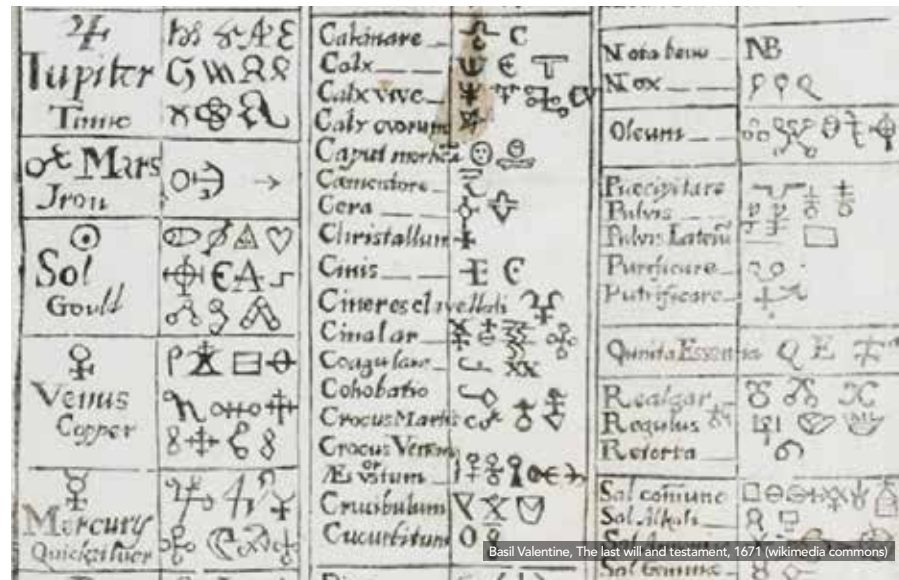 Jupiter
Tinne
Mars
Iron
Sol
Gould
Venus
Copper
Mercury
Quicksilver
Calcinare
Calx
Calx vive
Calx ovorum
Caput mortuu
Cera
Christallum
Cinis
Cineres clavellati
Coagulare
Cohobatio
Crocus Martis
Crocus Veneris
or
Æs ustum
Crucibulum
Cucurbitum
Nota bene NB
Nox
Oleum
Præcipitare
Pulvis
Purificare
Putrificare
Quinta Essentia QE
Realgar
Regulus
Retorta
Sal comune
Sal Alkali
Sal Gemmæ
Basil Valentine, The last will and testament, 1671 (wikimedia commons)